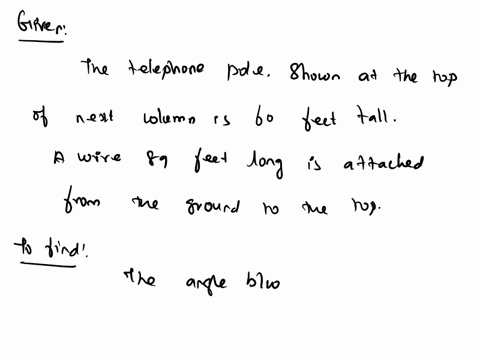 Given:
The telephone pole. Shown at the top
of next column is 60 feet tall.
A wire 89 feet long is attached
from the ground to the top.
To find:
The angle b/w